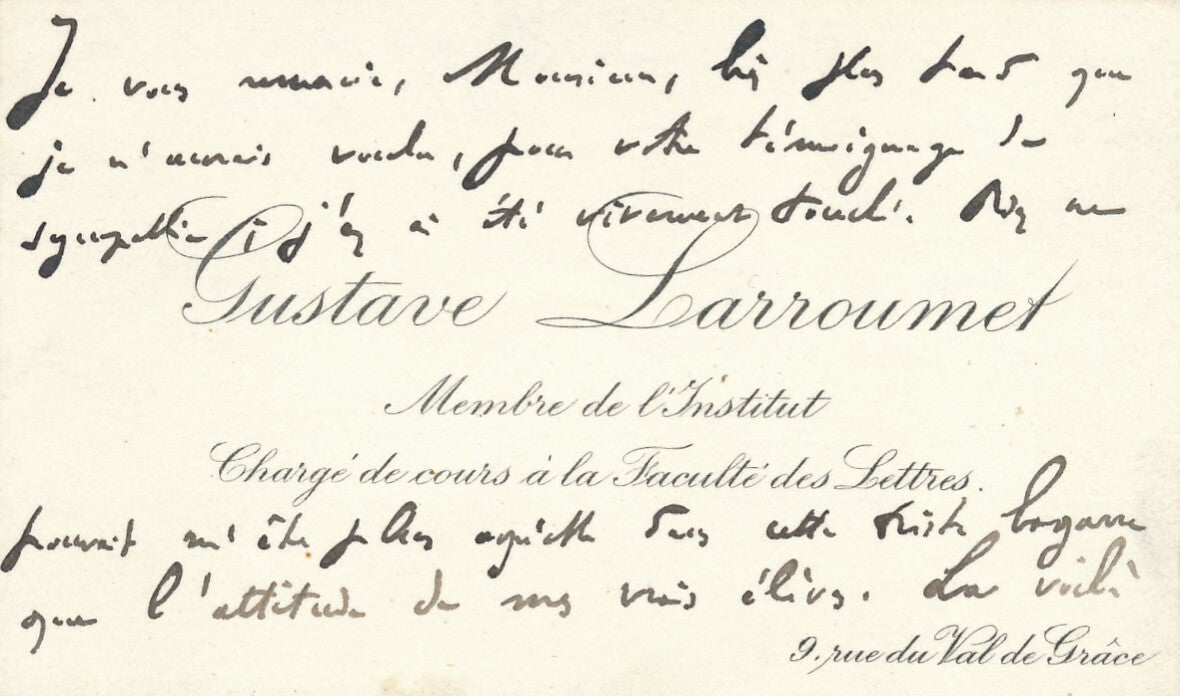 Je vous remercie, Monsieur, bien plus tard que
je n'aurais voulu, pour votre témoignage de
sympathie ; j'en ai été vivement touché. Rien ne
Gustave Larroumet
Membre de l'Institut
Chargé de cours à la Faculté des Lettres.
pouvait m'être plus dans cette triste bagarre
que l'attitude de mes vrais élèves. La voilà
9, rue du Val de Grâce